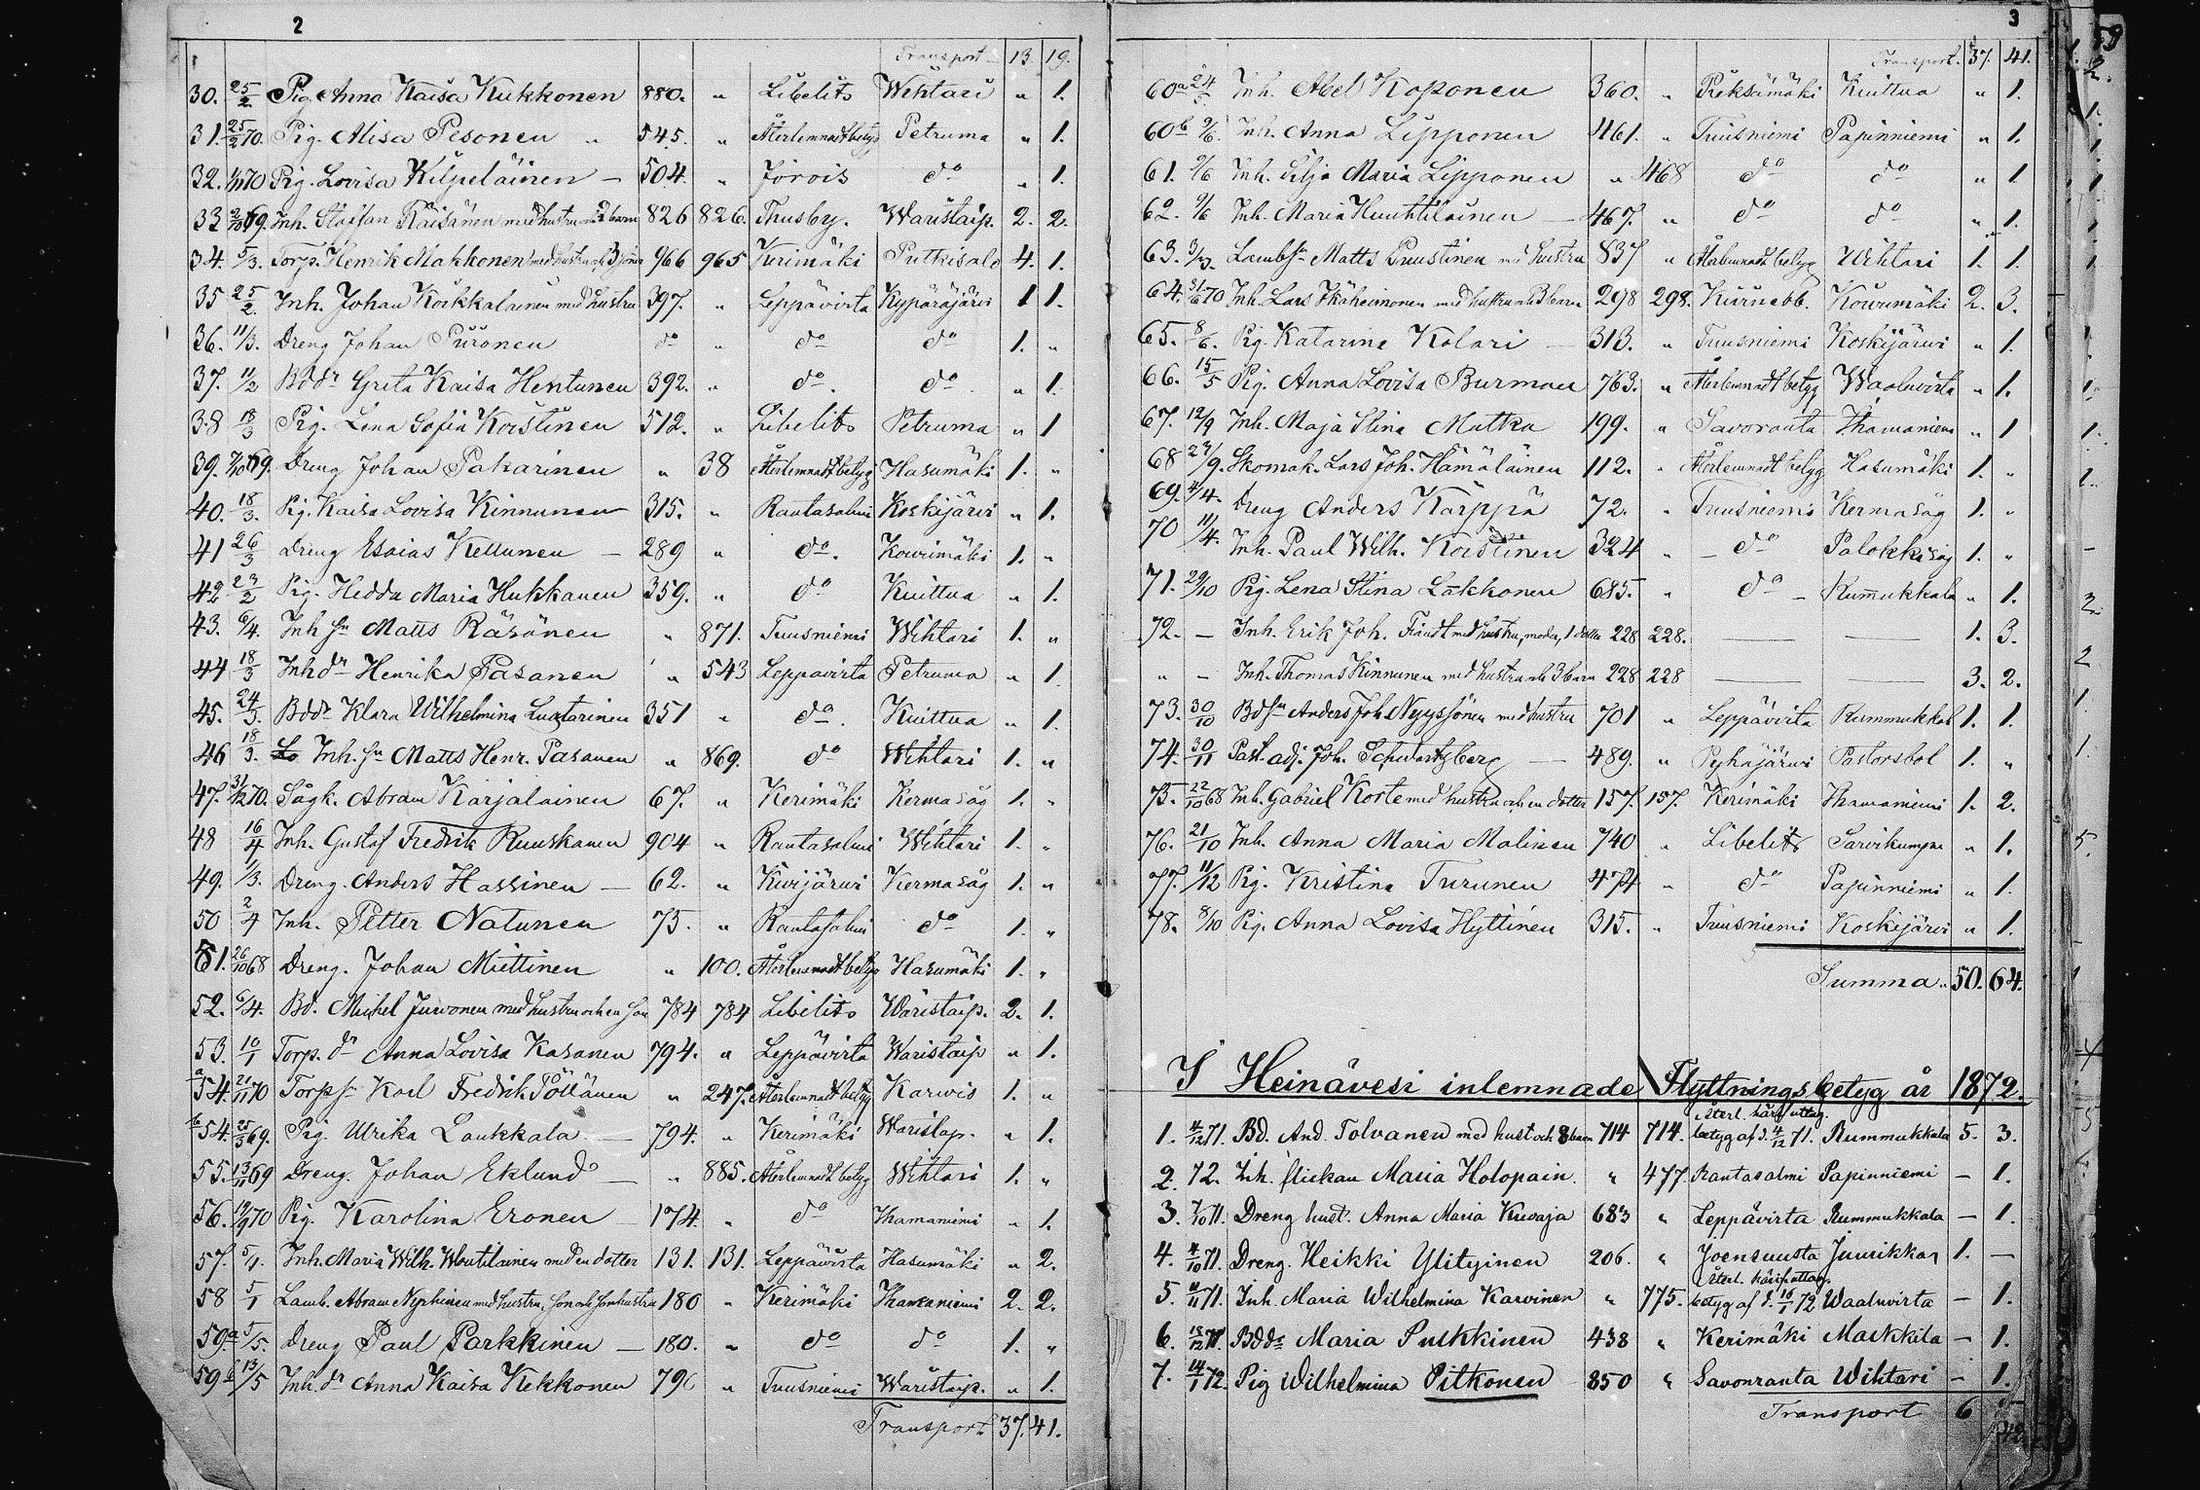 2
Transport 13. 19.
30. 25/2 Pig. Anna Kaisa Kukkonen 880. " Libelits Wihtari " 1.
31. 25/2 70. Pig. Alisa Pesonen " 545. " Återlemnadt betyg Petruma " 1.
32. 1/11 70 Pig. Lovisa Kilpeläinen — 504. " Jorois do " 1.
33 2/10 69. Inh. Staffan Räisänen med hustru och 2 barn 826 826. Thusby. Waristaip. 2. 2.
34. 5/3. Torp. Henrik Makkonen med hustru och 3 söner 966 965 Kerimäki Putkisalo 4. 1.
35 25/2. Inh. Johan Koikkalainen med hustru 397. " Leppävirta Kypäräjärvi 1 1.
36. 11/3. Dreng Johan Piironen do " do do 1. "
37. 11/2 Bddr Greta Kaisa Hentunen 392. " do. do " 1.
38 18/3 Pig. Lena Sofia Koistinen 512. " Libelits Petruma " 1
39. 7/10 69. Dreng Johan Pakarinen " 38 Återlemnadt betyg Hasumäki 1. "
40. 18/3. Pig. Kaisa Lovisa Kinnunen 315. " Rantasalmi Koskijärvi " 1.
41 26/3 Dreng Esaias Kettunen — 289 " do. Kowrimäki 1. "
42 23/2 Pig. Hedda Maria Hukkanen 359. " do Kuittua " 1.
43. 6/4. Inh sn Matts Räsänen " 871. Tuusniemi Wihtari 1. "
44 18/3 Inh dr Henrika Pasanen " 543 Leppävirta Petruma " 1
45. 24/3. Bddr Klara Wilhelmina Luostarinen 351 " do. Kuittua " 1
46 18/3. Inh. sn Matts Henr. Pasanen " 869. do Wihtari 1. "
47. 31/12 70. Sågk. Abram Karjalainen 67. " Kerimäki Kerma såg 1. "
48 16/4 Inh. Gustaf Fredrik Ruuskanen 904 " Rantasalmi Wihtari 1. "
49. 1/3. Dreng. Anders Hassinen — 62. " Kivijärvi Kerma såg 1. "
50 2/4 Inh. Petter Natunen 75. " Rantasalmi do 1. "
51. 26/10 68 Dreng. Johan Miettinen " 100. Återlemnadt betyg Hasumäki 1. "
52. 6/4. Bd. Michel Juvonen med hustru och en son 784 784 Libelits Waristaip. 2. 1.
53. 10/1 Torp. dr Anna Lovisa Kasanen 794. " Leppävirta Waristaip " 1.
a 54. 21/11 70 Torp sn Karl Fredrik Pöllänen " 247. Återlemnadt betyg Karwio 1. "
b 54. 25/3 69. Pig. Ulrika Laukkala — 794. " Kerimäki Waristap. " 1.
55. 13/11 69 Dreng. Johan Eklund — " 885. Återlemnadt betyg Wihtari 1. "
56. 19/9 70 Pig. Karolina Eronen 174. " do Thamaniemi " 1.
57. 5/1. Inh. Maria Wilh. Woutilainen med en dotter 131. 131. Leppävirta Hasumäki " 2.
58 5/1 Lamb. Abram Nyphinen med hustru, son och sonhustru 180 " Kerimäki Thamaniemi 2. 2.
59a 5/5. Dreng Paul Parkkinen — 180. " do do 1. "
59b 13/5 Inh. dr Anna Kaisa Kekkonen 796 " Tuusniemi Waristaip. " 1.
Transport 37. 41.
3
Transport. 37. 41.
60a 24/5 Inh. Abel Koponen 360. " Pieksämäki Kuittua " 1.
60b 9/6. Inh. Anna Lipponen 461. " Tuusniemi Papinniemi " 1.
61. 9/6 Inh. Silja Maria Lipponen " 468 do do " 1.
62. 9/6 Inh. Maria Huuhtilainen — 467. " do do " 1.
63. 3/3. Lamb sn Matts Puustinen med hustru 837 " Återlemnadt betyg Wihtari 1. 1.
64. 31/6 70 Inh. Lars Ikäheimonen med hustru och 3 barn 298 298. Kuusnebb. Kowrimäki 2. 3.
65. 8/6. Pig. Katarina Kolari — 313. " Tuusniemi Koskijärvi " 1.
66. 15/5 Pig. Anna Lovisa Burman 763. " Återlemnadt betyg Waaluvirta " 1.
67. 12/9 Inh. Maja Stina Matka 199. " Savoranta Thamaniem " 1
68 27/9. Skomak. Lars Joh. Hämäläinen 112. " Återlemnadt betyg Hasumäki 1. "
69. 4/4. Dreng Anders Karppa 72. " Tuusniemi Kerma såg 1. "
70 11/4. Inh. Paul Wilh. Koistinen 324 " — do Palokki såg 1. "
71. 29/10 Pig. Lena Stina Lakkonen 685. " do — Rumukkala " 1.
72. — Inh. Erik Joh. Tiandt med hustru, moder, 1 dotter 228 228. — — 1. 3.
" — Inh. Thomas Kinnunen med hustru och 3 barn 228 228 — — 3. 2.
73. 30/10 Bd sn Anders Joh. Nyyssönen med hustru 701 " Leppävirta Rummukkal 1. 1.
74. 30/11 Past. adj. Joh. Schwartzberg — 489. " Pyhäjärvi Pastorsbol 1. "
75. 22/10 68 Inh. Gabriel Korte med hustru och en dotter 157. 157. Kerimäki Thamaniemi 1. 2.
76. 21/10 Inh. Anna Maria Malinen 740 " Libelits Sarvikumpu " 1.
77. 11/12 Pig. Kristina Turunen 474 " do Papinniemi " 1.
78. 8/10 Pig. Anna Lovisa Hyttinen 315. " Tuusniemi Koskijärvi " 1.
Summa.. 50. 64.
I Heinävesi inlemnade Flyttningsbetyg år 1872.
återl. härif. uttag.
1. 4/12 71. Bd. And. Tolvanen med hust och 8 barn 714 714. betyg af d. 4/12 71. Rummukkala 5. 3.
2. 72. Inh. flickan Maria Holopain. " 477. Rantasalmi Papinniemi — 1.
3. 7/10 71. Dreng hust. Anna Maria Kuvaja 683 " Leppävirta Rummukkala — 1.
4. 4/10 71. Dreng. Heikki Ylityinen 206. " Joensuusta Juurikka 1. —
återl. härif. uttag.
5. 4/11 71. Inh. Maria Wilhelmina Karvinen " 775. betyg af d. 16/1 72 Waaluvirta — 1.
6. 15/12 71. Bddr Maria Puikkinen 438 " Kerimäki Markkila — 1.
7. 14/1 72. Pig Wilhelmina Pitkonen 850 " Savonranta Wihtari — 1.
Transport 6